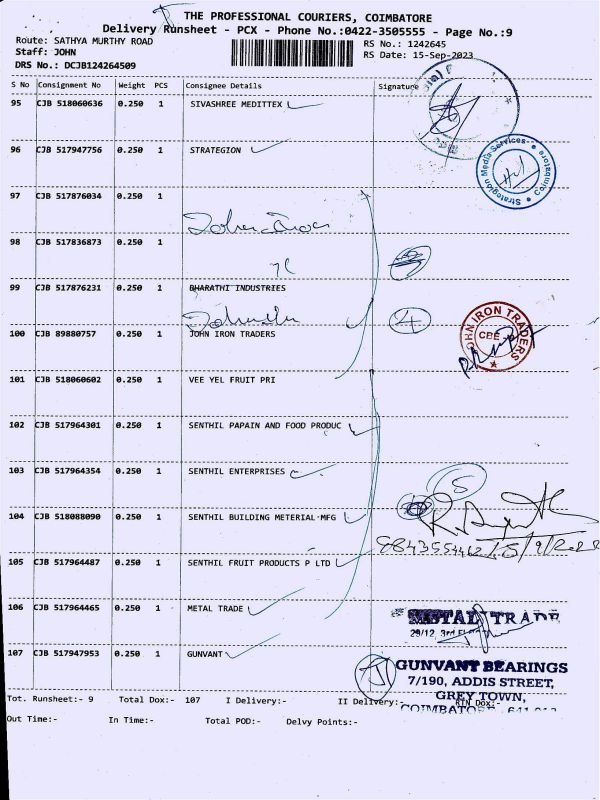 THE PROFESSIONAL COURIERS, COIMBATORE
Delivery Runsheet - PCX - Phone No.:0422-3505555 - Page No.:9
Route: SATHYA MURTHY ROAD
Staff: JOHN
DRS No.: DCJB124264509
RS No.: 1242645
RS Date: 15-Sep-2023
S No Consignment No Weight PCS Consignee Details Signature
95 CJB 518060636 0.250 1 SIVASHREE MEDITTEX
96 CJB 517947756 0.250 1 STRATEGION
Strategion Media Services Coimbatore
97 CJB 517876034 0.250 1
98 CJB 517836873 0.250 1
99 CJB 517876231 0.250 1 BHARATHI INDUSTRIES
4
100 CJB 89880757 0.250 1 JOHN IRON TRADERS
JOHN IRON TRADERS
CBE
101 CJB 518060602 0.250 1 VEE YEL FRUIT PRI
102 CJB 517964301 0.250 1 SENTHIL PAPAIN AND FOOD PRODUC
103 CJB 517964354 0.250 1 SENTHIL ENTERPRISES
5
104 CJB 518088090 0.250 1 SENTHIL BUILDING METERIAL-MFG
105 CJB 517964487 0.250 1 SENTHIL FRUIT PRODUCTS P LTD
106 CJB 517964465 0.250 1 METAL TRADE
METAL TRADE
29/12, 3rd
107 CJB 517947953 0.250 1 GUNVANT
GUNVANT BEARINGS
7/190, ADDIS STREET,
GREY TOWN,
COIMBATORE
Tot. Runsheet:- 9 Total Dox:- 107 I Delivery:- II Delivery:- RTN Dox:-
Out Time:- In Time:- Total POD:- Delvy Points:-